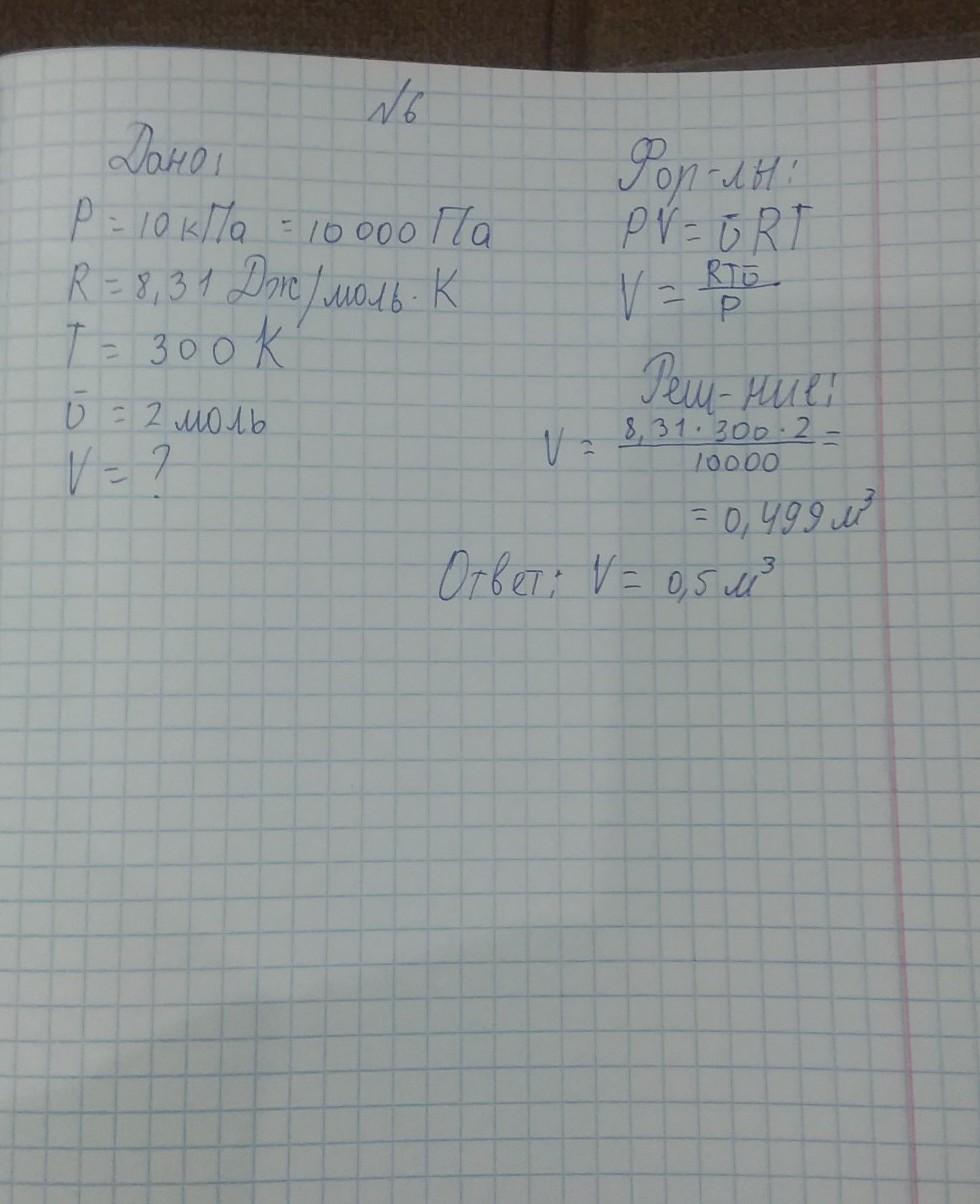 №6
Дано:
P = 10 кПа = 10000 Па
R = 8,31 Дж/моль·К
T = 300 К
ῡ = 2 моль
V = ?
Фор-лы:
PV = ῡRT
V = RTῡ/P
Реш-ние:
V = 8,31·300·2/10000 =
= 0,499 м³
Ответ: V = 0,5 м³